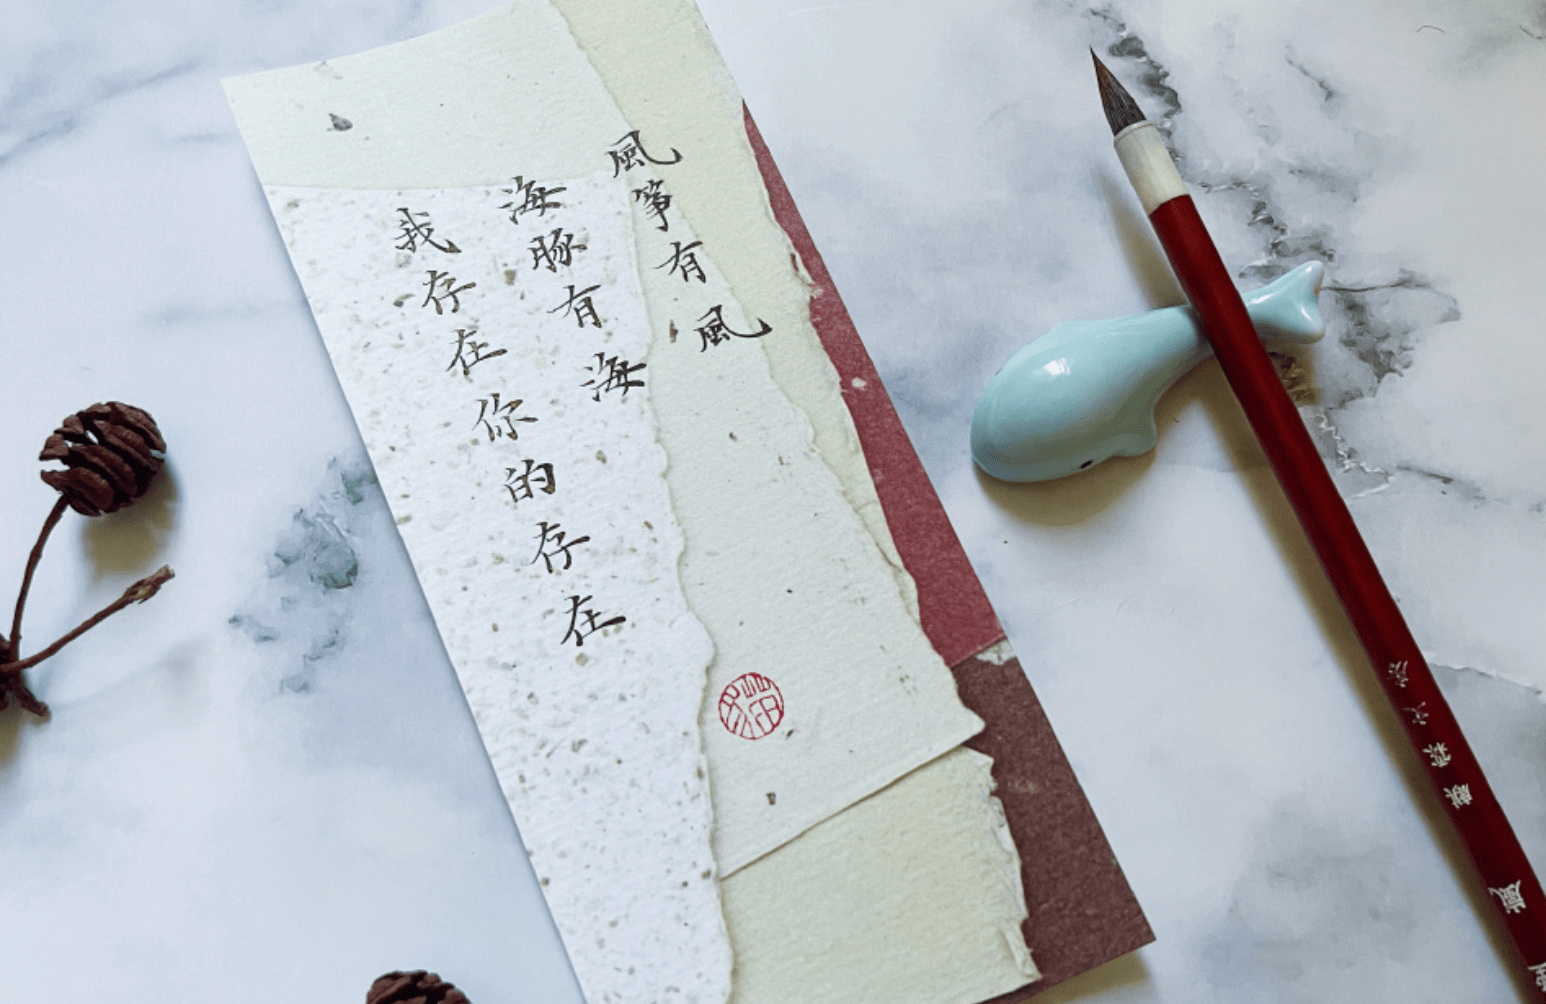 風筝有風
海豚有海
我存在你的存在